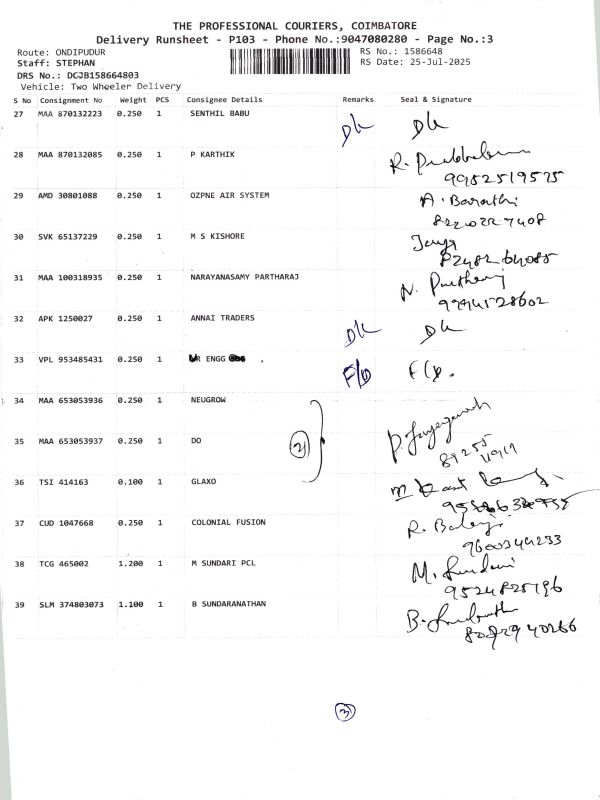 THE PROFESSIONAL COURIERS, COIMBATORE
Delivery Runsheet - P103 - Phone No.:9047080280 - Page No.:3
Route: ONDIPUDUR
RS No.: 1586648
Staff: STEPHAN
RS Date: 25-Jul-2025
DRS No.: DCJB158664803
Vehicle: Two Wheeler Delivery
S No Consignment No Weight PCS Consignee Details Remarks Seal & Signature
27 MAA 870132223 0.250 1 SENTHIL BABU DL DL
28 MAA 870132085 0.250 1 P KARTHIK
9952519575
29 AMD 30801088 0.250 1 OZPNE AIR SYSTEM A. Barathi
8220227408
30 SVK 65137229 0.250 1 M S KISHORE
31 MAA 100318935 0.250 1 NARAYANASAMY PARTHARAJ
32 APK 1250027 0.250 1 ANNAI TRADERS DL DL
33 VPL 953485431 0.250 1 R ENGG
34 MAA 653053936 0.250 1 NEUGROW
35 MAA 653053937 0.250 1 DO
36 TSI 414163 0.100 1 GLAXO
37 CUD 1047668 0.250 1 COLONIAL FUSION R. Balaji
9600344233
38 TCG 465002 1.200 1 M SUNDARI PCL M. Sundari
9524825196
39 SLM 374803073 1.100 1 B SUNDARANATHAN